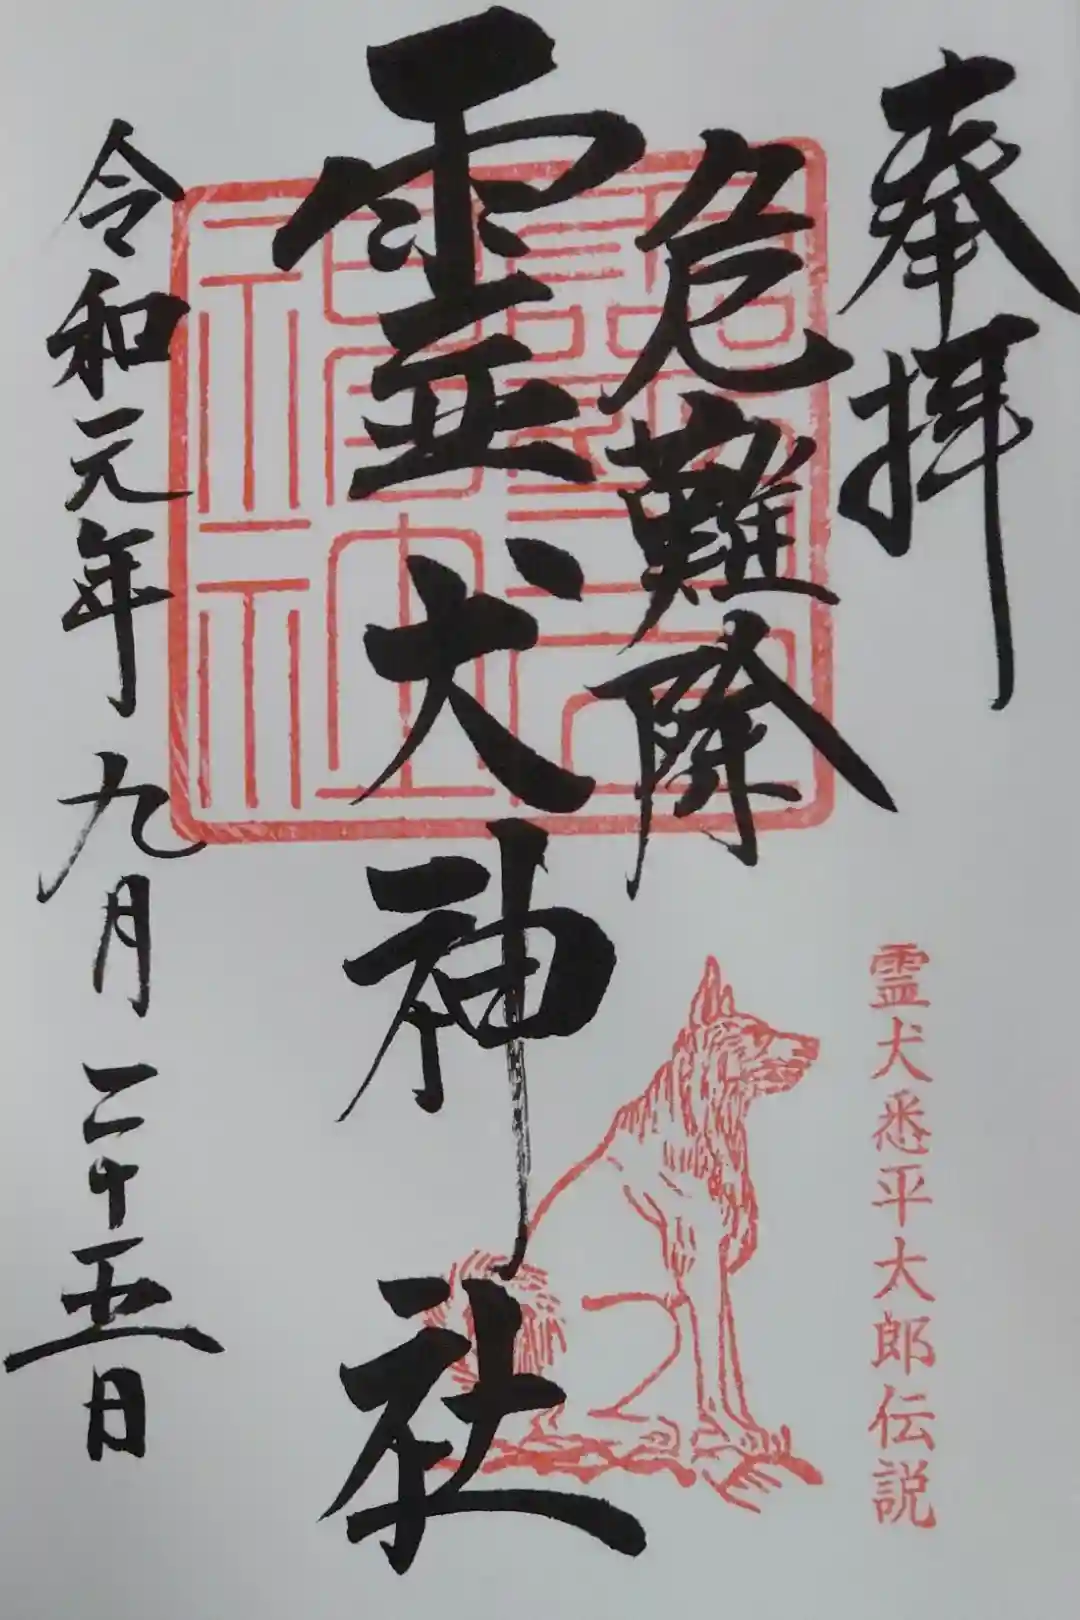 奉拝
危難降
霊犬神社
令和元年九月二十五日
霊犬悉平太郎伝説